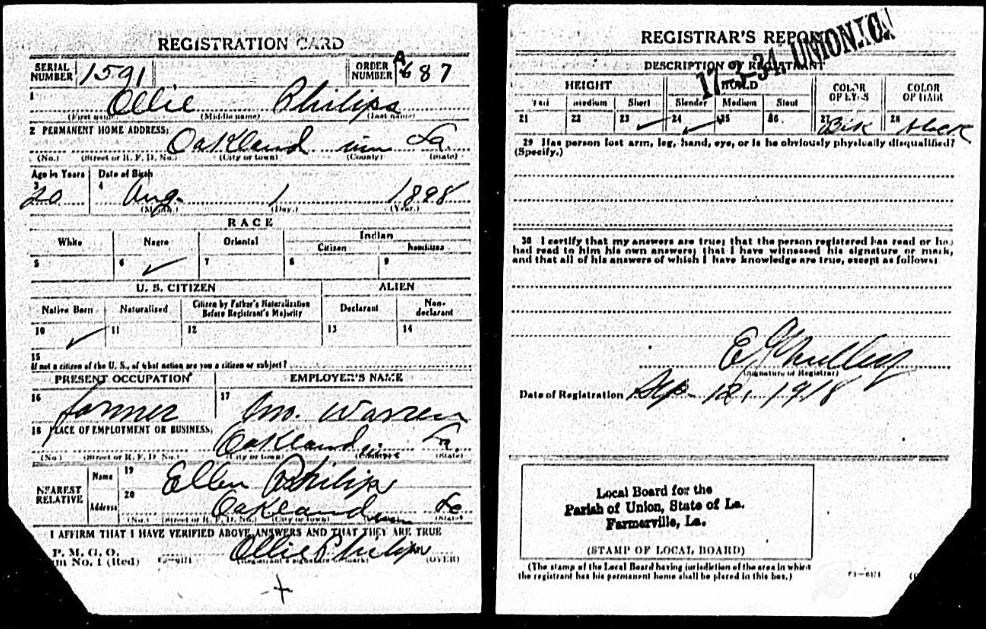 REGISTRATION CARD
SERIAL NUMBER 1591 ORDER NUMBER A 687
1 Ollie Philips
(First name) (Middle name) (Last name)
2 PERMANENT HOME ADDRESS:
Oakland La
(No.) (Street or R. F. D. No.) (City or town) (County) (State)
Age in Years Date of Birth
3 20 4 Aug. 1 1898
(Month.) (Day.) (Year.)
RACE
White Negro Oriental Indian
Citizen Noncitizen
5 6 ✓ 7 8 9
U. S. CITIZEN ALIEN
Native Born Naturalized Citizen by Father's Naturalization Before Registrant's Majority Declarant Non-declarant
10 ✓ 11 12 13 14
15
If not a citizen of the U. S., of what nation are you a citizen or subject?
PRESENT OCCUPATION EMPLOYER'S NAME
16 farmer 17 Warren
18 PLACE OF EMPLOYMENT OR BUSINESS:
Oakland La
(No.) (Street or R. F. D. No.) (City or town) (County) (State)
NEAREST RELATIVE Name 19 Ellen Philips
Address 20 Oakland La
(No.) (Street or R. F. D. No.) (City or town) (State)
I AFFIRM THAT I HAVE VERIFIED ABOVE ANSWERS AND THAT THEY ARE TRUE
P. M. G. O.
m No. 1 (Red) Ollie Philips
(Registrant's signature or mark) (OVER)
REGISTRAR'S REPORT
17-3-34. UNION.
DESCRIPTION OF REGISTRANT
HEIGHT BUILD COLOR OF EYES COLOR OF HAIR
Tall Medium Short Slender Medium Stout
21 22 23 ✓ 24 ✓ 25 26 27 Blk 28 black
29 Has person lost arm, leg, hand, eye, or is he obviously physically disqualified?
(Specify.)
30 I certify that my answers are true; that the person registered has read or has
had read to him his own answers; that I have witnessed his signature or mark,
and that all of his answers of which I have knowledge are true, except as follows:
(Signature of Registrar)
Date of Registration Sep. 12, 1918
Local Board for the
Parish of Union, State of La.
Farmerville, La.
(STAMP OF LOCAL BOARD)
(The stamp of the Local Board having jurisdiction of the area in which
the registrant has his permanent home shall be placed in this box.)